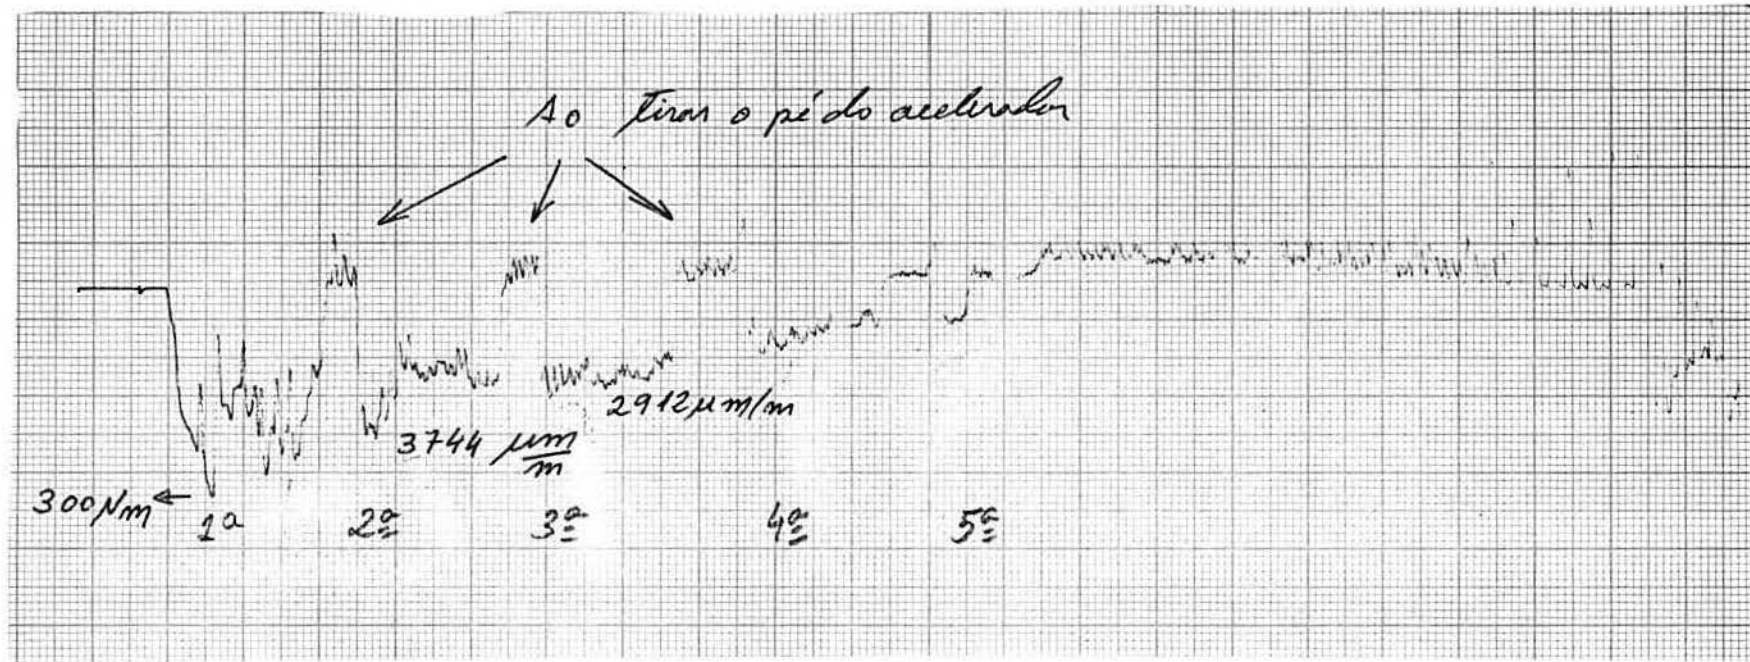 Ao tirar o pé do acelerador
2912 µm/m
3744 µm/m
300 Nm
1ª 2ª 3ª 4ª 5ª